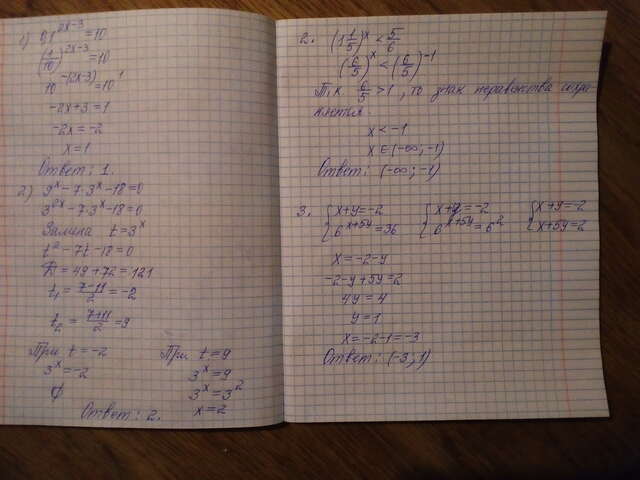 1) 0,1^{2x-3} = 10
(1/10)^{2x-3} = 10
10^{-(2x-3)} = 10^1
-2x+3 = 1
-2x = -2
x = 1
Ответ: 1.
2) 9^x - 7·3^x - 18 = 0
3^{2x} - 7·3^x - 18 = 0
Замена t = 3^x
t^2 - 7t - 18 = 0
D = 49 + 72 = 121
t_1 = (7-11)/2 = -2
t_2 = (7+11)/2 = 9
При t = -2
3^x = -2
∅
При t = 9
3^x = 9
3^x = 3^2
x = 2
Ответ: 2.
2. (1 1/5)^x < 5/6
(6/5)^x < (6/5)^{-1}
Т.к 6/5 > 1, то знак неравенства сохра-
няется.
x < -1
x ∈ (-∞; -1)
Ответ: (-∞; -1)
3. { x+y = -2 { x+y = -2 { x+y = -2
6^{x+5y} = 36 6^{x+5y} = 6^2 x+5y = 2
x = -2-y
-2-y+5y = 2
4y = 4
y = 1
x = -2-1 = -3
Ответ: (-3; 1)